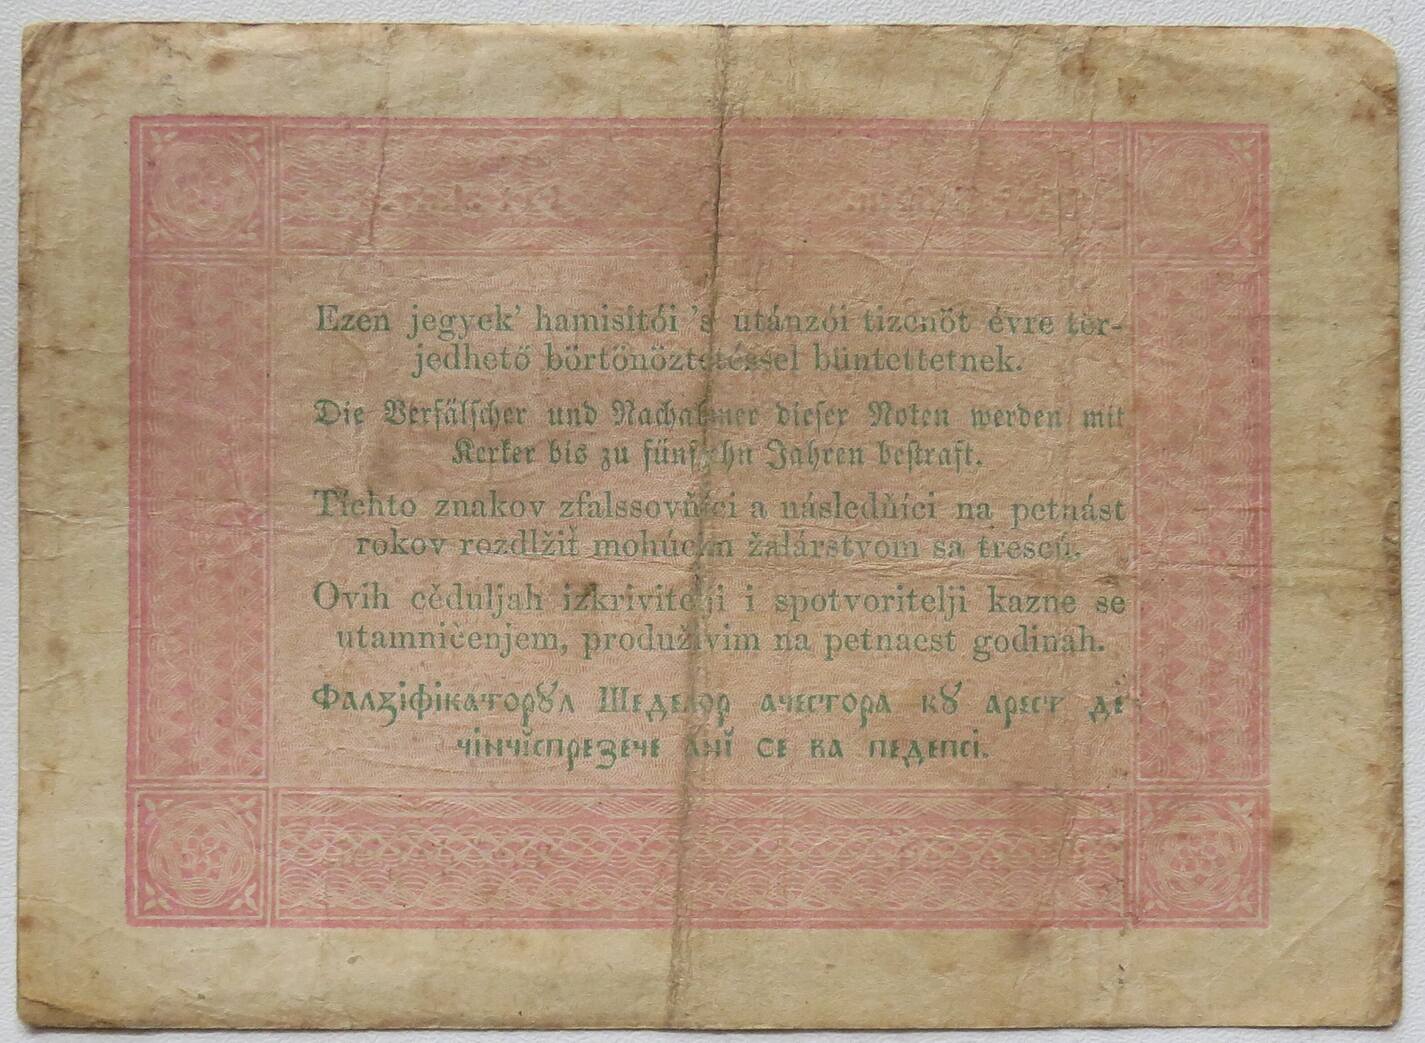 Ezen jegyek’ hamisitói ’s utánzói tizenöt évre ter-
jedhető börtönöztetéssel büntettetnek.
Die Verfälscher und Nachahmer dieser Noten werden mit
Kerker bis zu fünfzehn Jahren bestraft.
Tíchto znakov zfalssovňíci a následňíci na petnást
rokov rozdlžiť mohúcím žalárstvom sa trescú.
Ovih cěduljah izkrivitelji i spotvoritelji kazne se
utamničenjem, produživim na petnaest godinah.
Фалзіфікаторꙋл Шеделор ачестора кꙋ арест де
чінчіспрезече ані се ва педепсі.